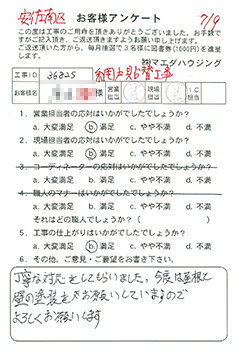 安佐南区 お客様アンケート 7/9
この度は工事のご用命を頂きありがとうございました。お手数で
すがご記入頂き、ご返送頂きますようお願い申し上げます。
ご返送頂いた方から、毎月抽選で3名様に図書券(1000円)を進呈
します。 ㈱マエダハウジング
工事ID 36825 網戸貼替工事
お客様名 様 営業担当 現場担当 IC担当
1．営業担当者の応対はいかがでしたでしょうか？
a. 大変満足 b. 満足 c. やや不満 d. 不満
2．現場担当者の応対はいかがでしたでしょうか？
a. 大変満足 b. 満足 c. やや不満 d. 不満
3．コーディネーターの応対はいかがでしたでしょうか？
a. 大変満足 b. 満足 c. やや不満 d. 不満
4．職人のマナーはいかがでしたでしょうか？
a. 大変満足 b. 満足 c. やや不満 d. 不満
それはどの職人でしょうか？（ ）
5．工事の仕上がりはいかがでしたでしょうか？
a. 大変満足 b. 満足 c. やや不満 d. 不満
6．その他、ご意見・ご要望をお書き下さい。
丁寧な対応をしてもらいました。今度は屋根と
壁の塗装をお願いしていますので
よろしくお願いします